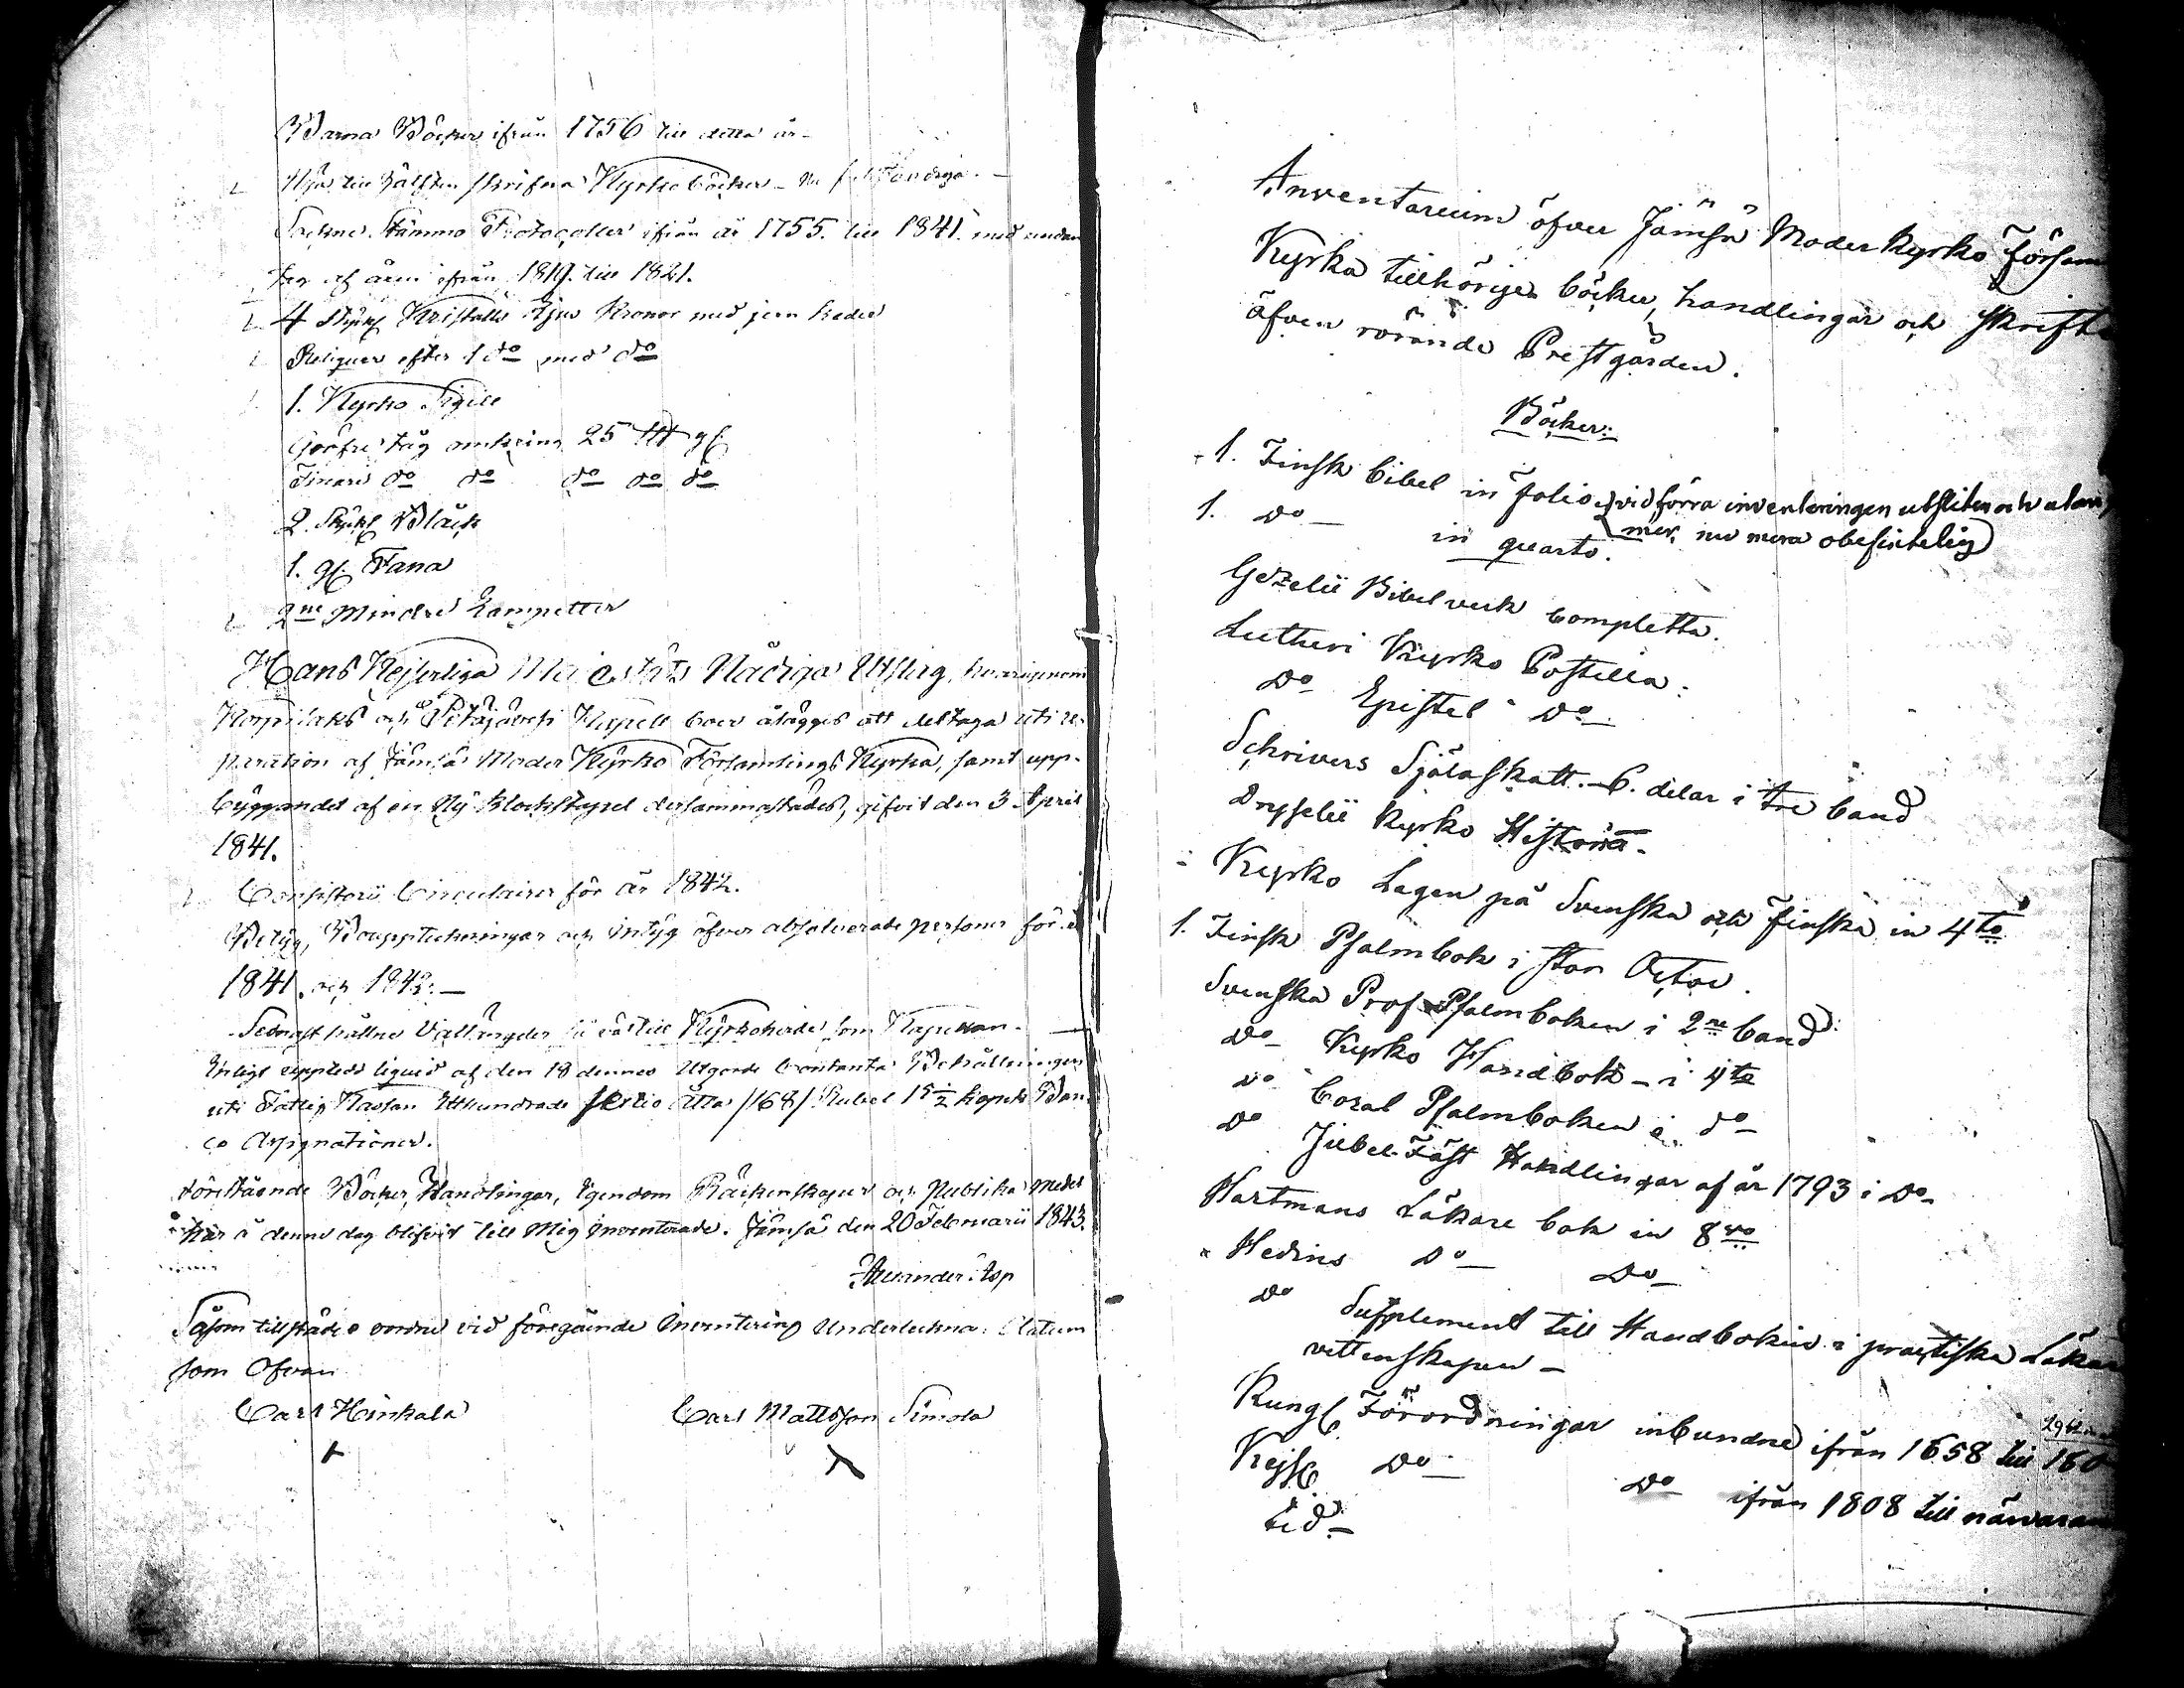 Barna Böcker ifrån 1756 till detta år.
Nya till hälften skrifna Kyrko böcker - nu fullständiga. -
Sockne Stämmo Protocoller ifrån år 1755. till 1841. med undan
tag af åren ifrån 1819. till 1821.
4 Styck Kristalls Ljus Kronor med jern keder
Reliquer efter 1 do med do
1. Kyrko Sigill
Gröfre tåg omkring 25 ℔ gl.
Finare do do do do do
2. Styck Bläck
1. gl. Fana
2ne Mindre Lampetter
Hans Kejserliga Majestäts Nådiga Utslag, hvarigenom
Korpilaks och Petäjävesi Kapell boer ålägges att deltaga uti re-
paration af Jämsä Moder Kyrko Församlings Kyrka, samt upp-
byggandet af en Ny Klockstapel dersammastädes, gifvit den 3 April
1841.
Consistorii Circulairer för år 1842.
Betyg, Bouppteckningar och intyg öfver absolverade personer för år
1841. och 1842. -
Sednast hållne Vallängder så väl till Kyrkoherde som Kapellan. -
Enligt upplöst liquid af den 18 dennes Utgorde Contanta Behållningen
uti Fattig Kassan Etthundrade sextio åtta /168/ Rubel 15½ kopek Ban-
co Assignationer.
Förestående Böcker, Handlingar, Egendom Räckenskaper och Publika medel
här å denne dag blifvit till Mig inventerade. Jämsä den 20 Februarii 1843.
Alexander Asp
Såsom tillstädes vordne vid föregående Inventering Underteckna. Datum
som Ofvan
Carl Hinkala
Carl Mattsson Simola
Inventarium öfver Jämsä Moder Kyrko Försam
Kyrka tillhöriga böcker, handlingar och Skrifte
äfven rörande Prestgården.
Böcker:
1. Finsk bibel in folio (vid förra inventeringen utsliten och utan
mer, nu mera obefintelig)
1. do - in quarto.
Gezelii Bibelverk completta.
Lutheri Kyrko Postilla.
do Epistel do
Schrivers Själaskatt. - 6. delar i tre band
Dryselii Kyrko Historia.
Kyrko Lagen på Svenska och Finska in 4to
1. Finsk Psalmbok i stor Octav.
Svenska Prof Psalmboken i 2ne band
do Kyrko Handbok - i 4to
do Coral Psalmboken i do
do Jubel-Fäst Handlingar af år 1793 i do
Hartmans Läkare bok in 8vo
Hedins do do
do Supplement till Handboken i practiska Läkare
vettenskapen -
Kungl Förordningar inbundne ifrån 1658 till 180
Kejsl do do ifrån 1808 till närvaran
tid. -